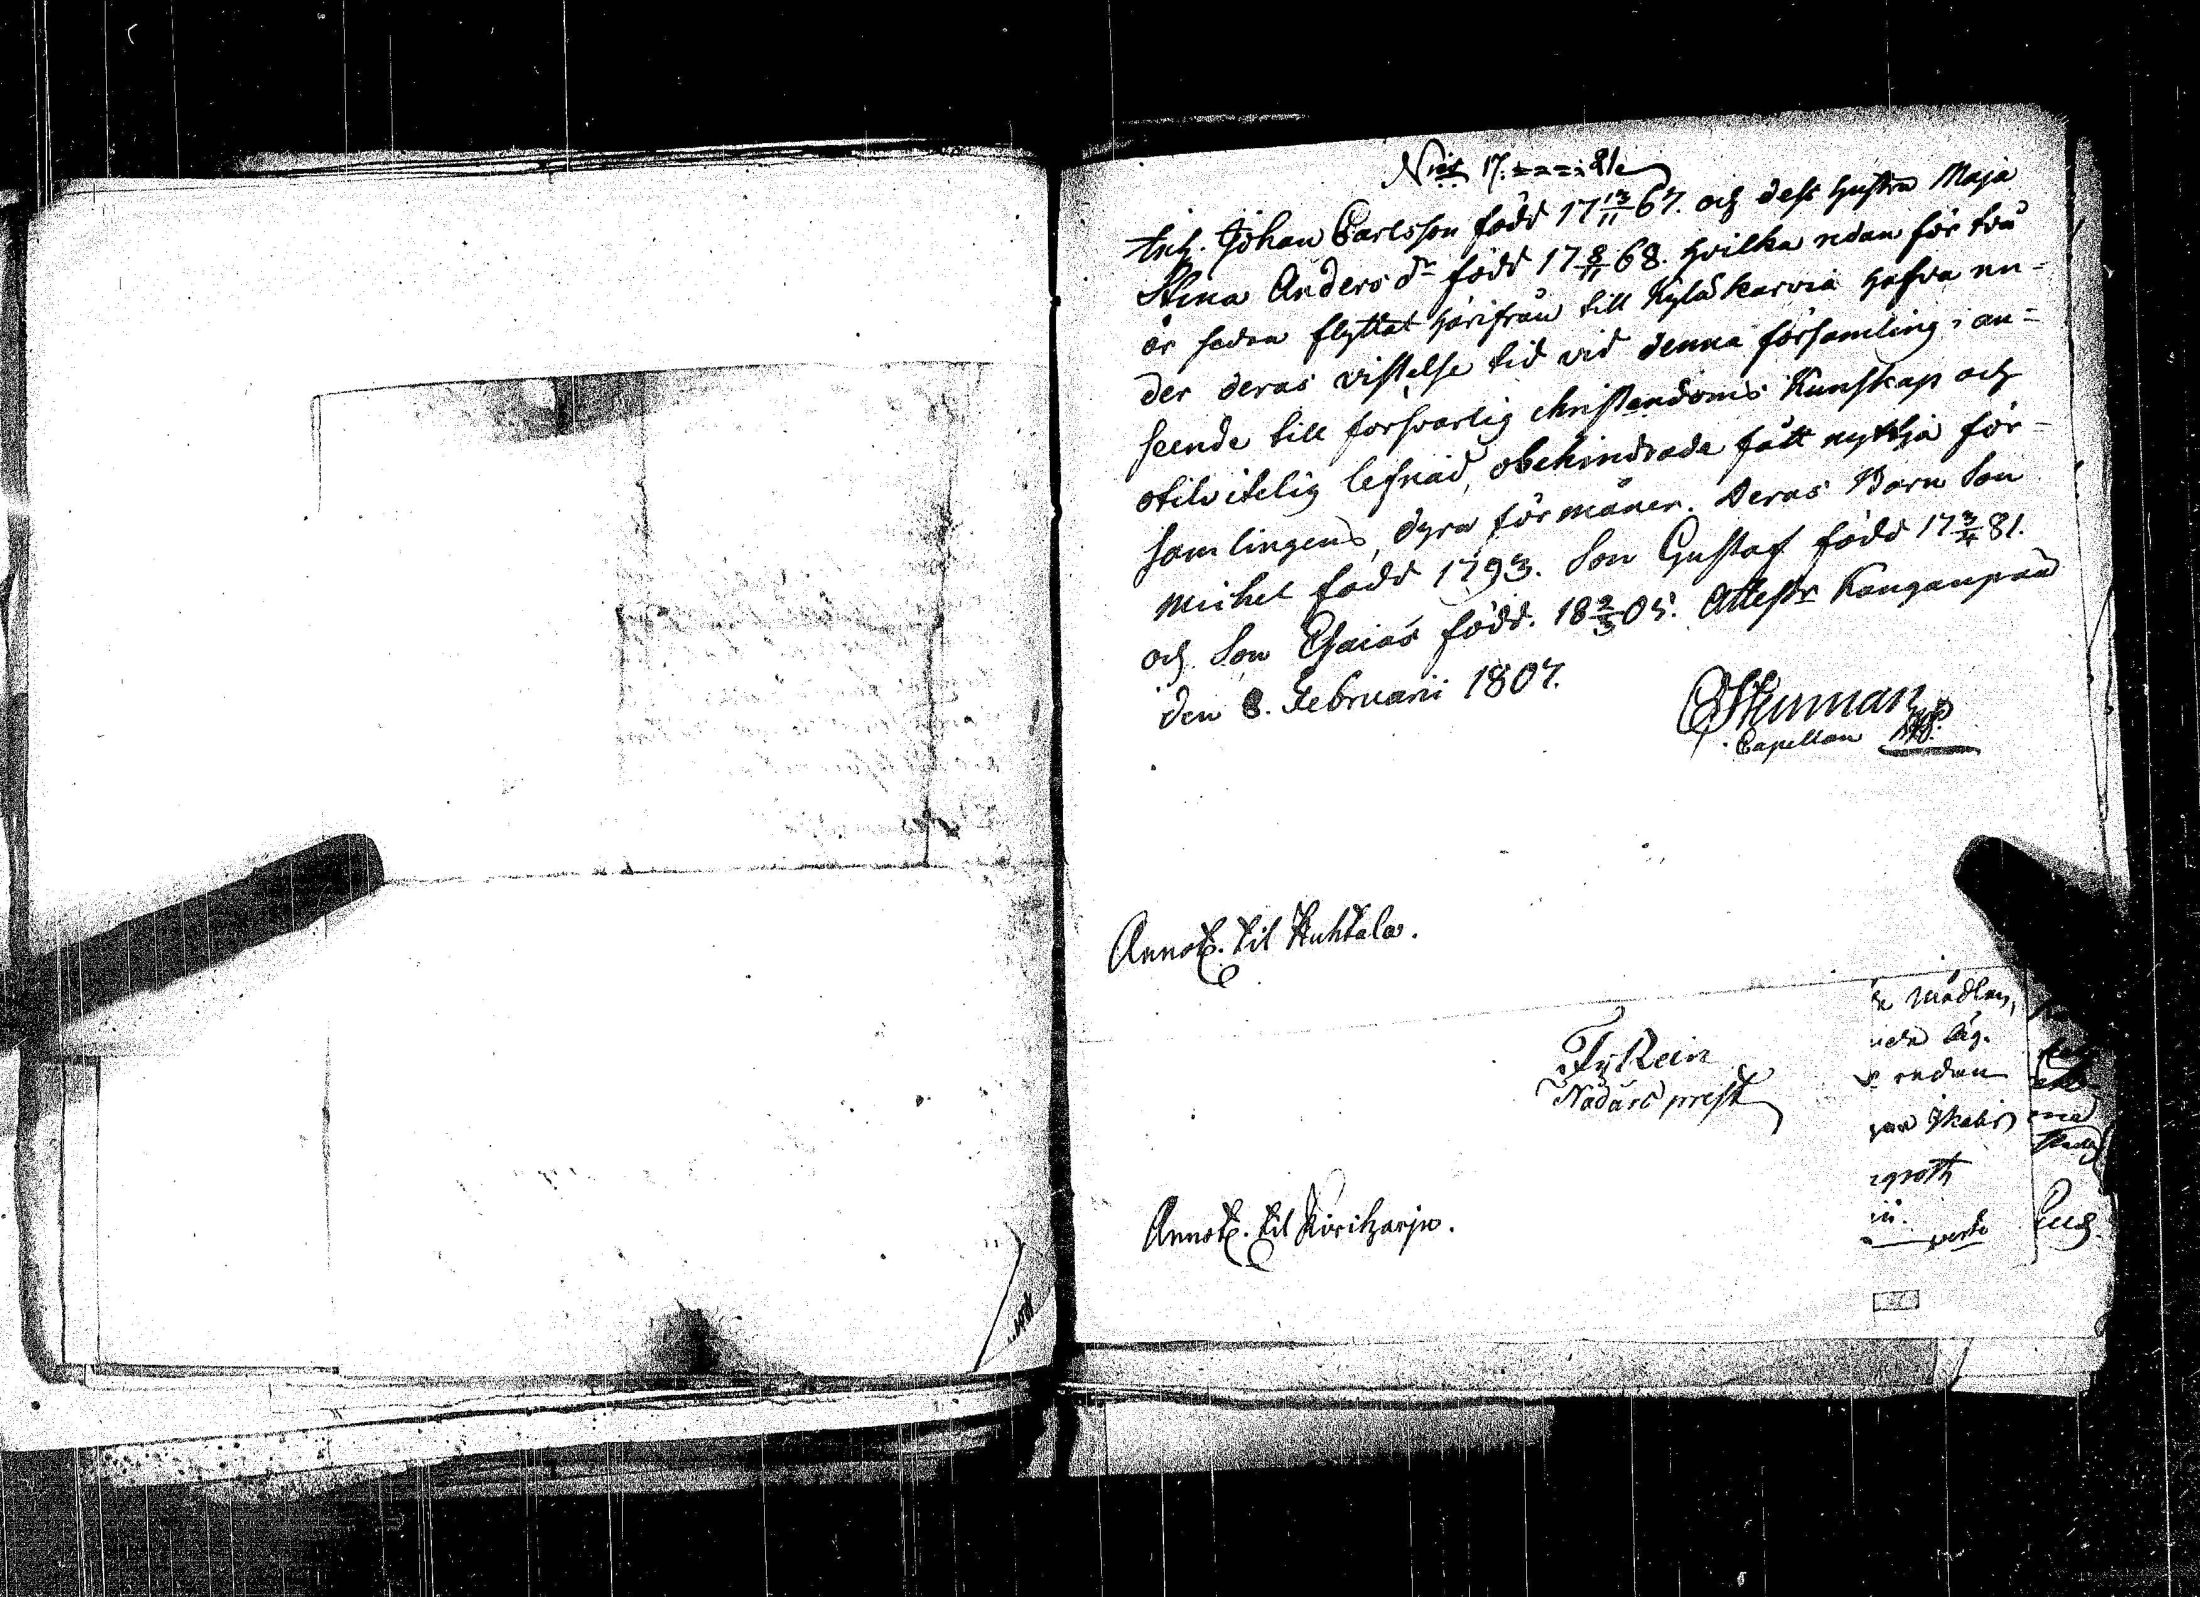 Inh. Johan Carlsson född 17 13/11 67. och dess hustru Maja
Stina Anders dr född 17 8/11 68. hvilka redan för två
år sedan flyttat härifrån till Kyläkarvia hafva un=
der deras vistelse tid vid denna församling i an=
seende till försvarlig christendoms Kunskap och
otilvitelig lefnad, obehindrade fått nyttja för=
samlingens dyra förmåner. Deras Barn Son
Michel född 1793. Son Gustaf född 17 3/4 81.
och Son Esaias född. 18 2/3 05. Attestr Kanganpää
den 8. Februarii 1807.
Capellan
Annot. til Huhtala.
Nådårs prest
Annot. til Kiviharju.
redan